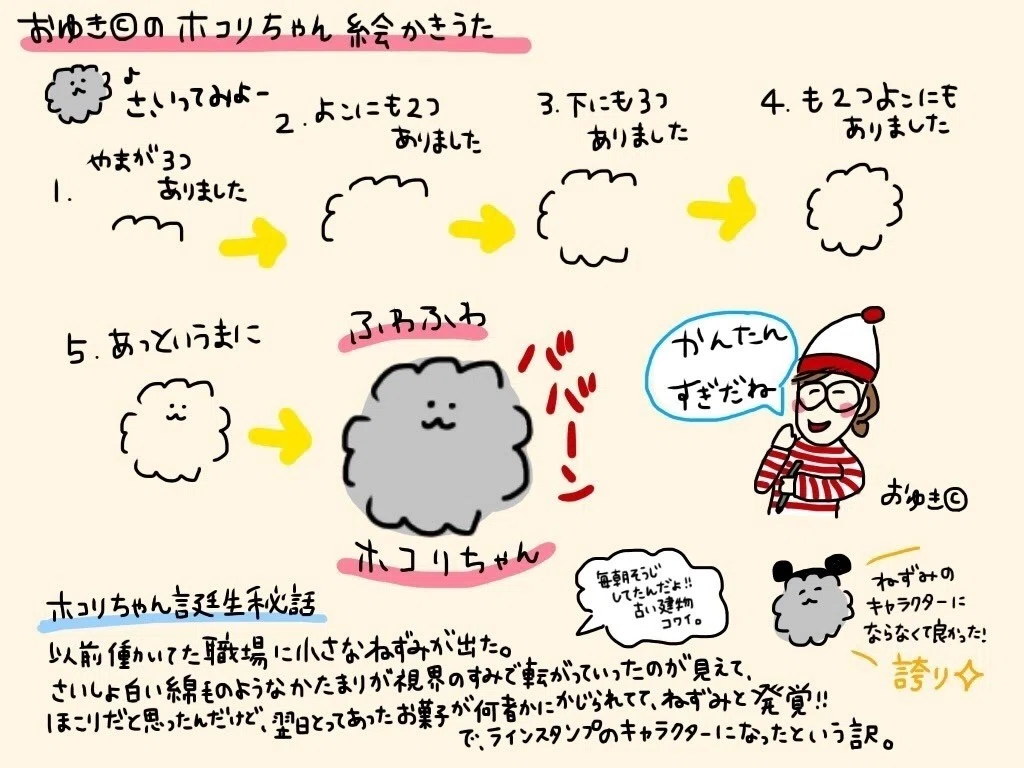 おゆき©のホコリちゃん絵かきうた
♪
さ、いってみよー
1. やまが3つ
ありました
2. よこにも2つ
ありました
3. 下にも3つ
ありました
4. も2つよこにも
ありました
5. あっというまに
ふわふわ
ババーン
ホコリちゃん
かんたん
すぎだね
おゆき©
ホコリちゃん誕生秘話
毎朝そうじ
してたんだよ!!
古い建物
コワイ。
ねずみの
キャラクターに
ならなくて良かった!
誇り
以前働いてた職場に小さなねずみが出た。
さいしょ白い綿毛のようなかたまりが視界のすみで転がっていったのが見えて、
ほこりだと思ったんだけど、翌日とってあったお菓子が何者かにかじられてて、ねずみと発覚!!
で、ラインスタンプのキャラクターになったという訳。